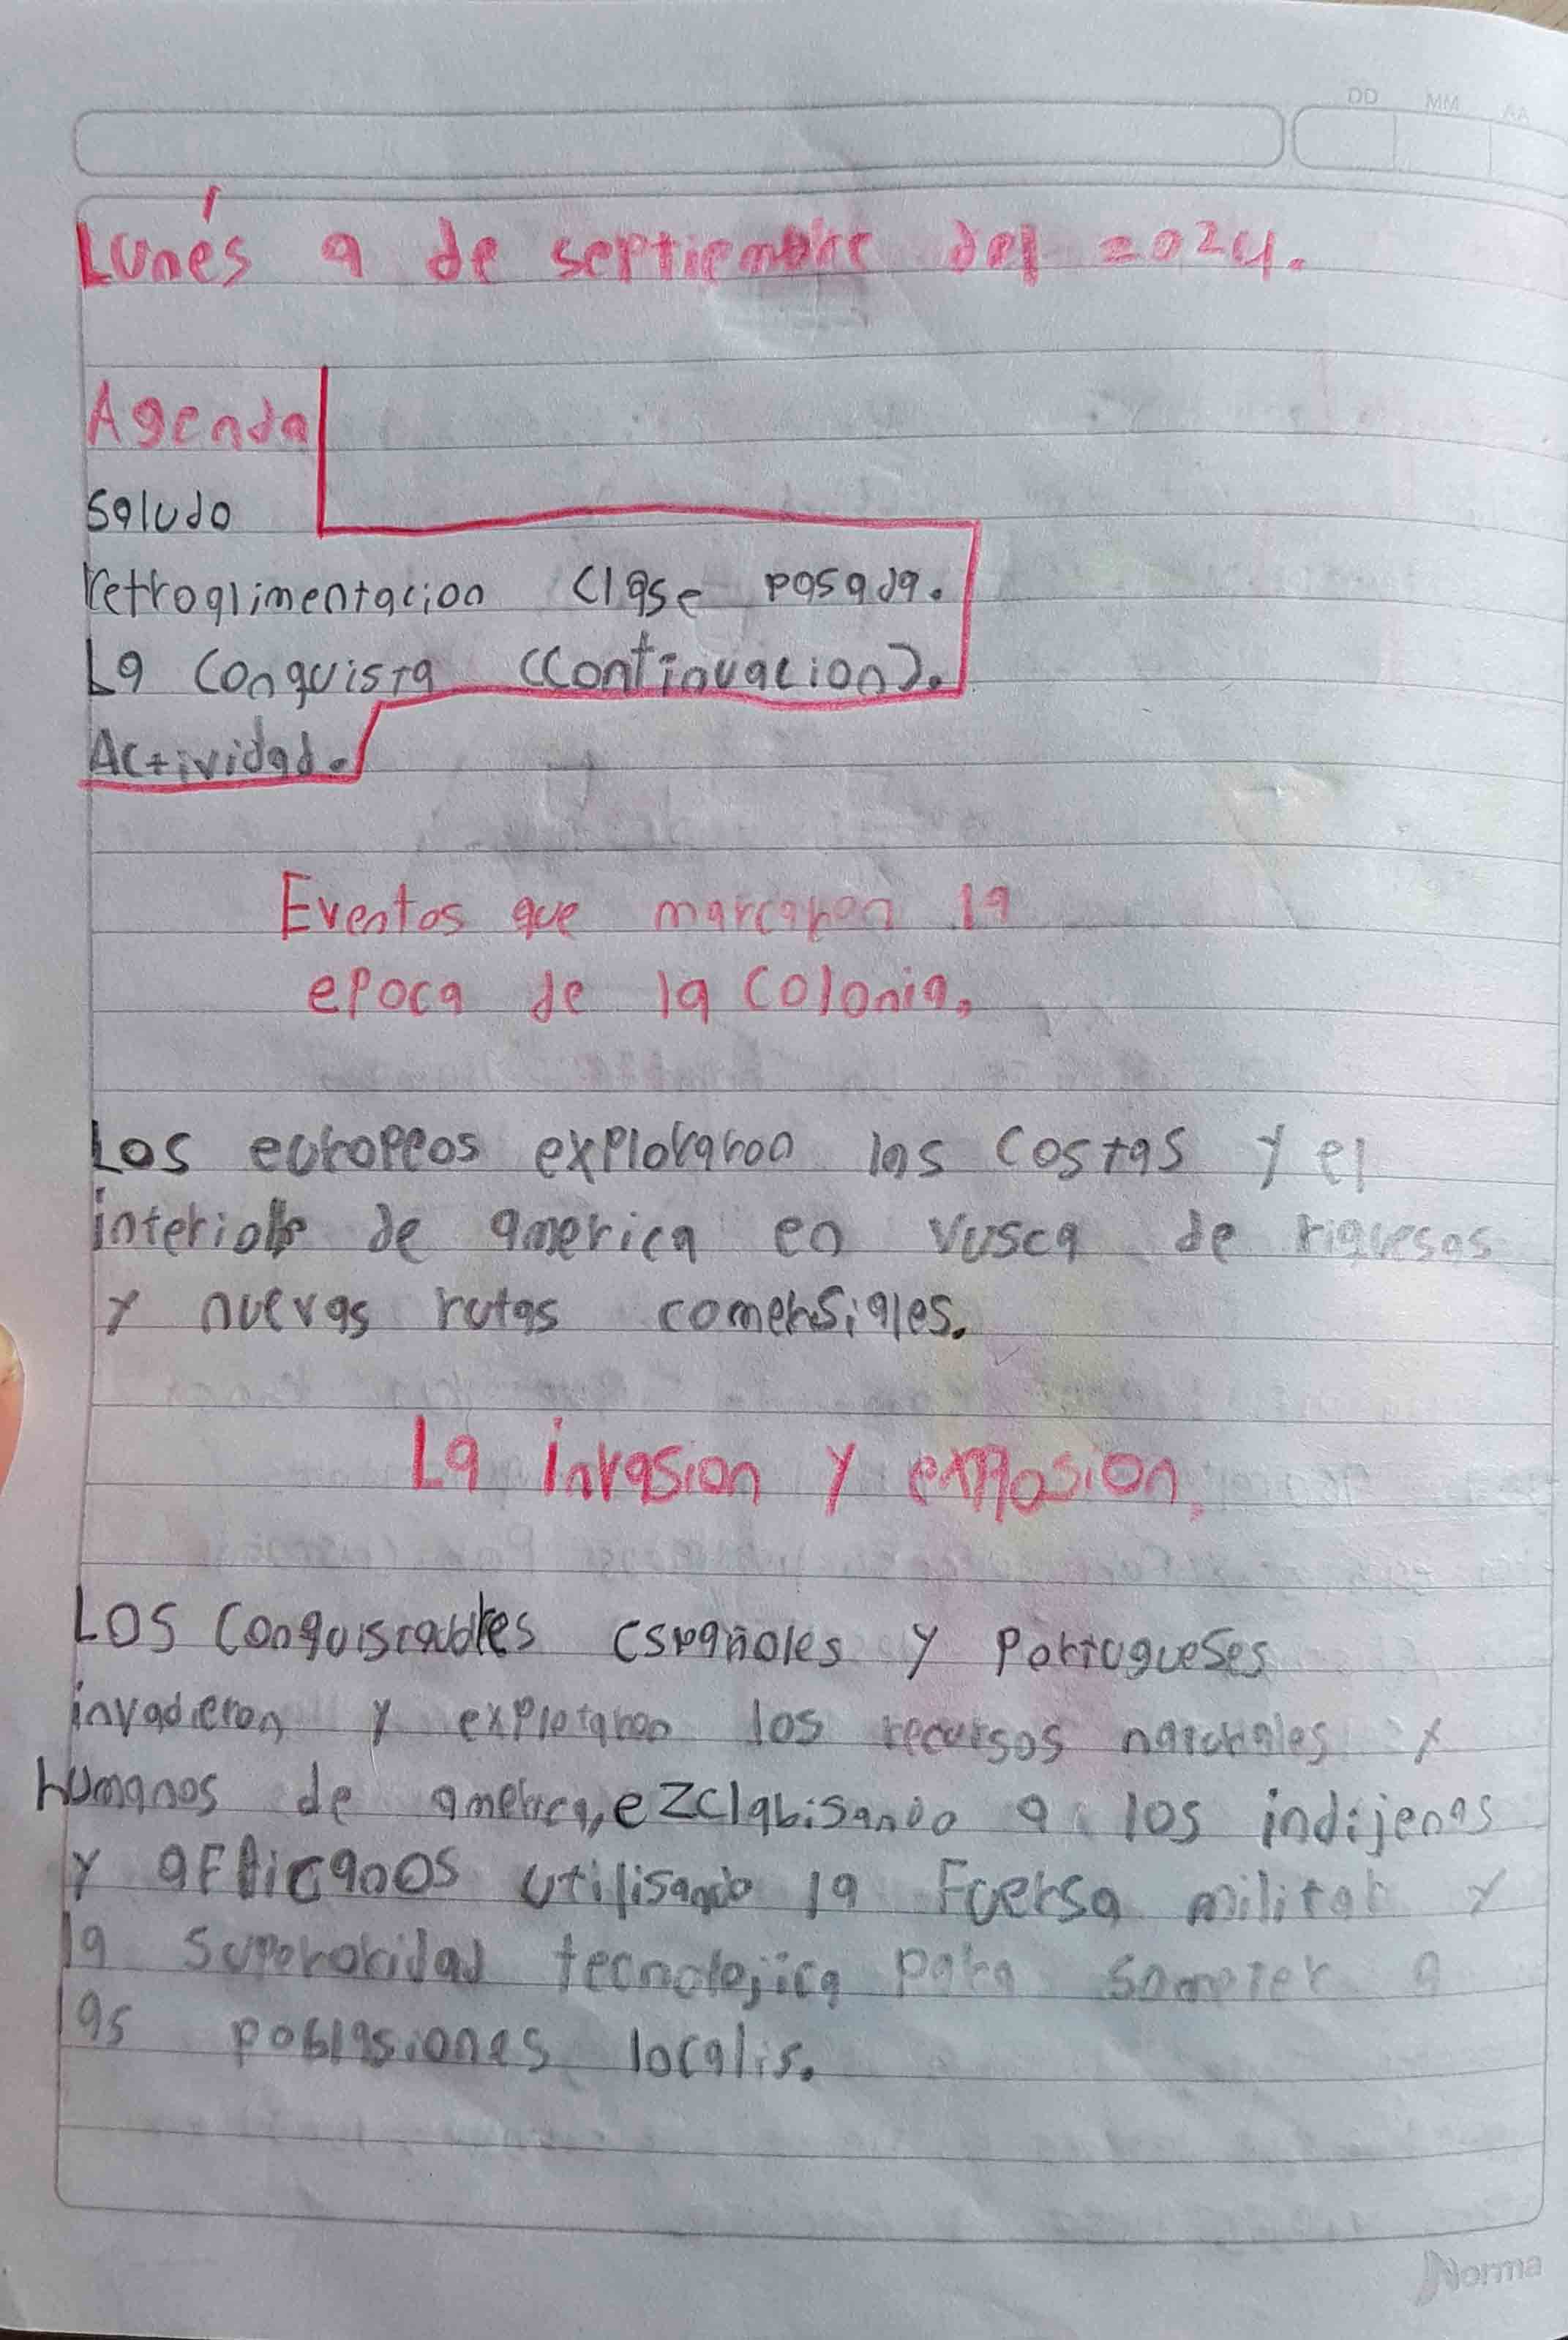 DD MM AA
Lunés 9 de septiembre del 2024.
Agenda
Saludo
retroalimentacion clase pasada.
La conquista (continuacion).
Actividad.
Eventos que marcaron la
epoca de la Colonia.
Los europeos exploraron las costas y el
interior de america en vusca de riquesas
y nuevas rutas comersiales.
La invasion y explosion.
Los conquistadores españoles y Portugueses
invadieron y explotaron los recursos naturales y
humanos de america, ezclabisando a los indijenas
y africanos utilisando la Fuersa militar y
la superoridad tecnolojica para someter a
las poblasiones localis.
Norma